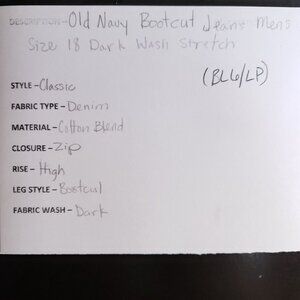 DESCRIPTION- Old Navy Bootcut Jeans Mens
Size 18 Dark Wash Stretch
(BL6/LP)
STYLE – Classic
FABRIC TYPE – Denim
MATERIAL – Cotton Blend
CLOSURE – Zip
RISE – High
LEG STYLE – Bootcut
FABRIC WASH – Dark